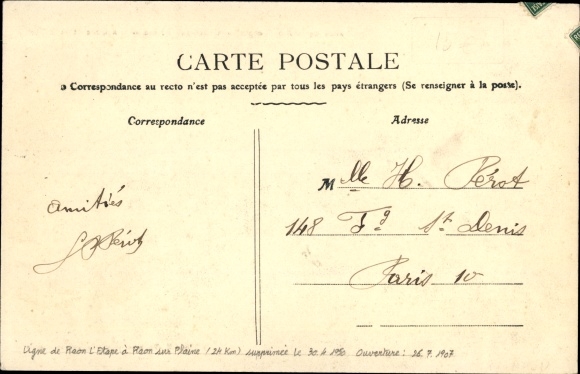 CARTE POSTALE
Correspondance au recto n'est pas acceptée par tous les pays étrangers (Se renseigner à la poste).
Correspondance
Adresse
Mlle H. Pérot
148 Fg St Denis
Paris 10
amitiés
Pérot
Ligne de Raon L'Etape à Raon sur Plaine (24 Km) supprimée le 30.4.1950 Ouverture: 26.7.1907